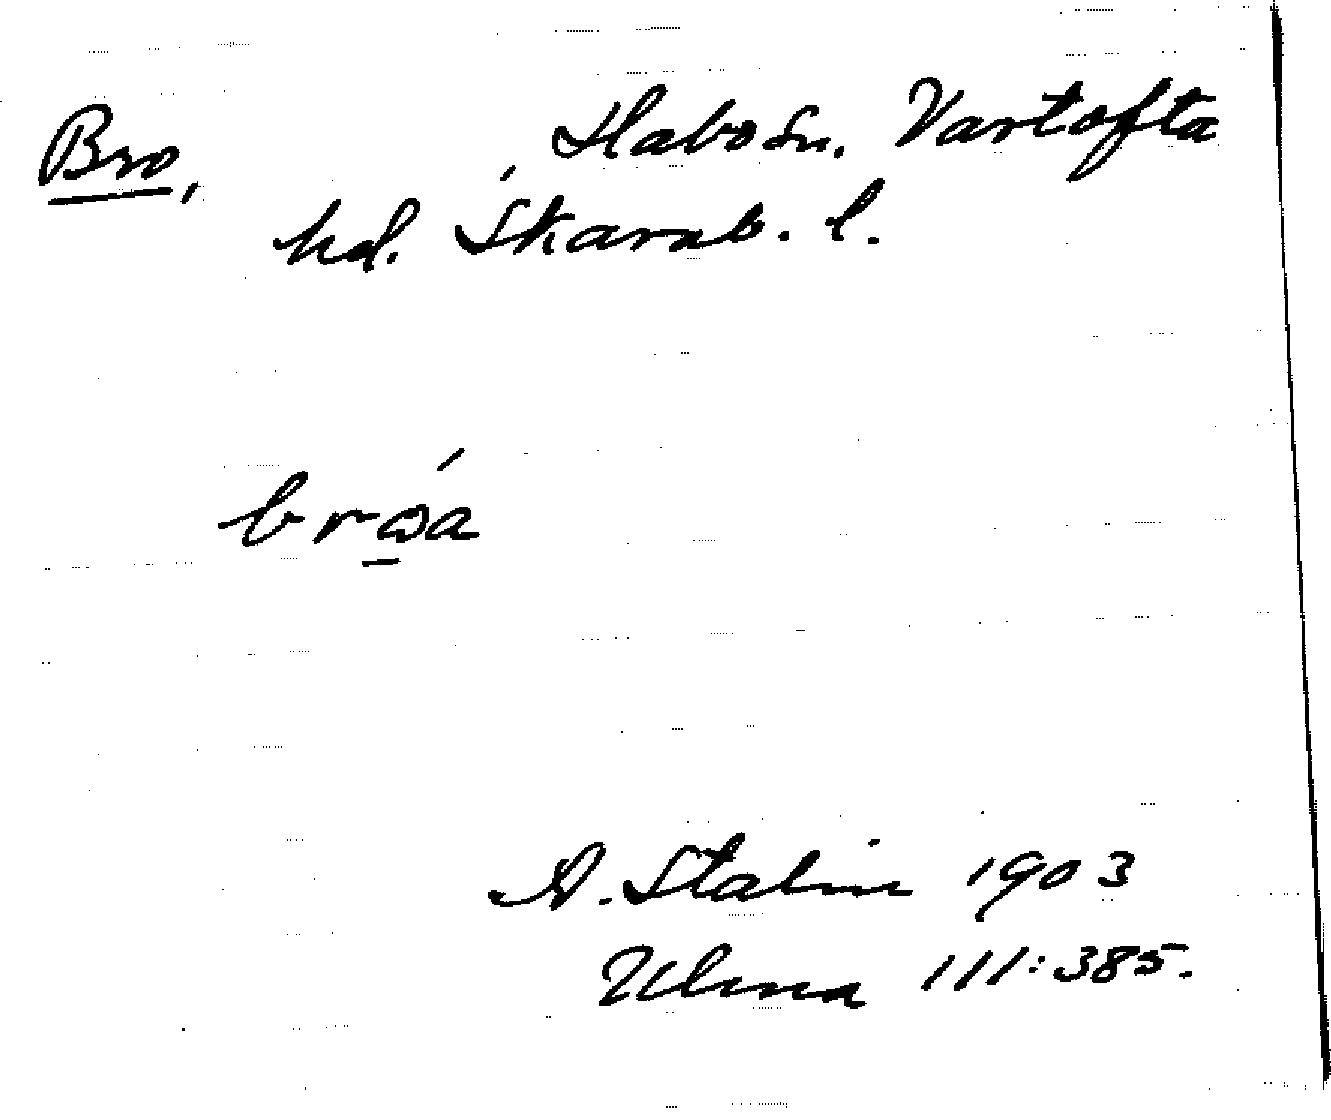 Bro, Habo sn. Vartofta
hd. Skarab. l.
bro̱a
A. Stalin 1903
Ulma 111:385.